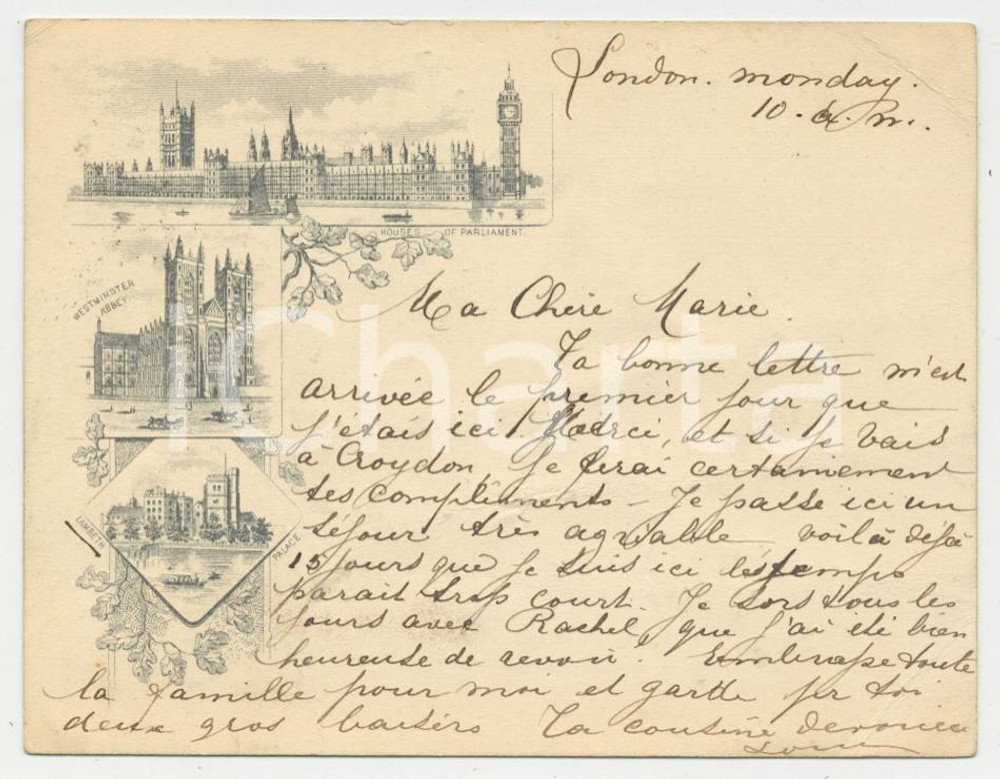 London. monday.
10. a. m.
HOUSES OF PARLIAMENT.
WESTMINSTER
ABBEY
LAMBETH
PALACE
Ma Chère Marie.
Ta bonne lettre m'est
arrivée le premier jour que
j'étais ici. Merci, et si je vais
à Croydon, je ferai certainement
tes compliments - Je passe ici un
séjour très agréable voilà déjà
15 jours que je suis ici le temps
parait trop court. Je sors tous les
jours avec Rachel, que j'ai été bien
heureuse de revoir. Embrasse toute
la famille pour moi et garde pr toi
deux gros baisers Ta cousine dévouée
iCharta